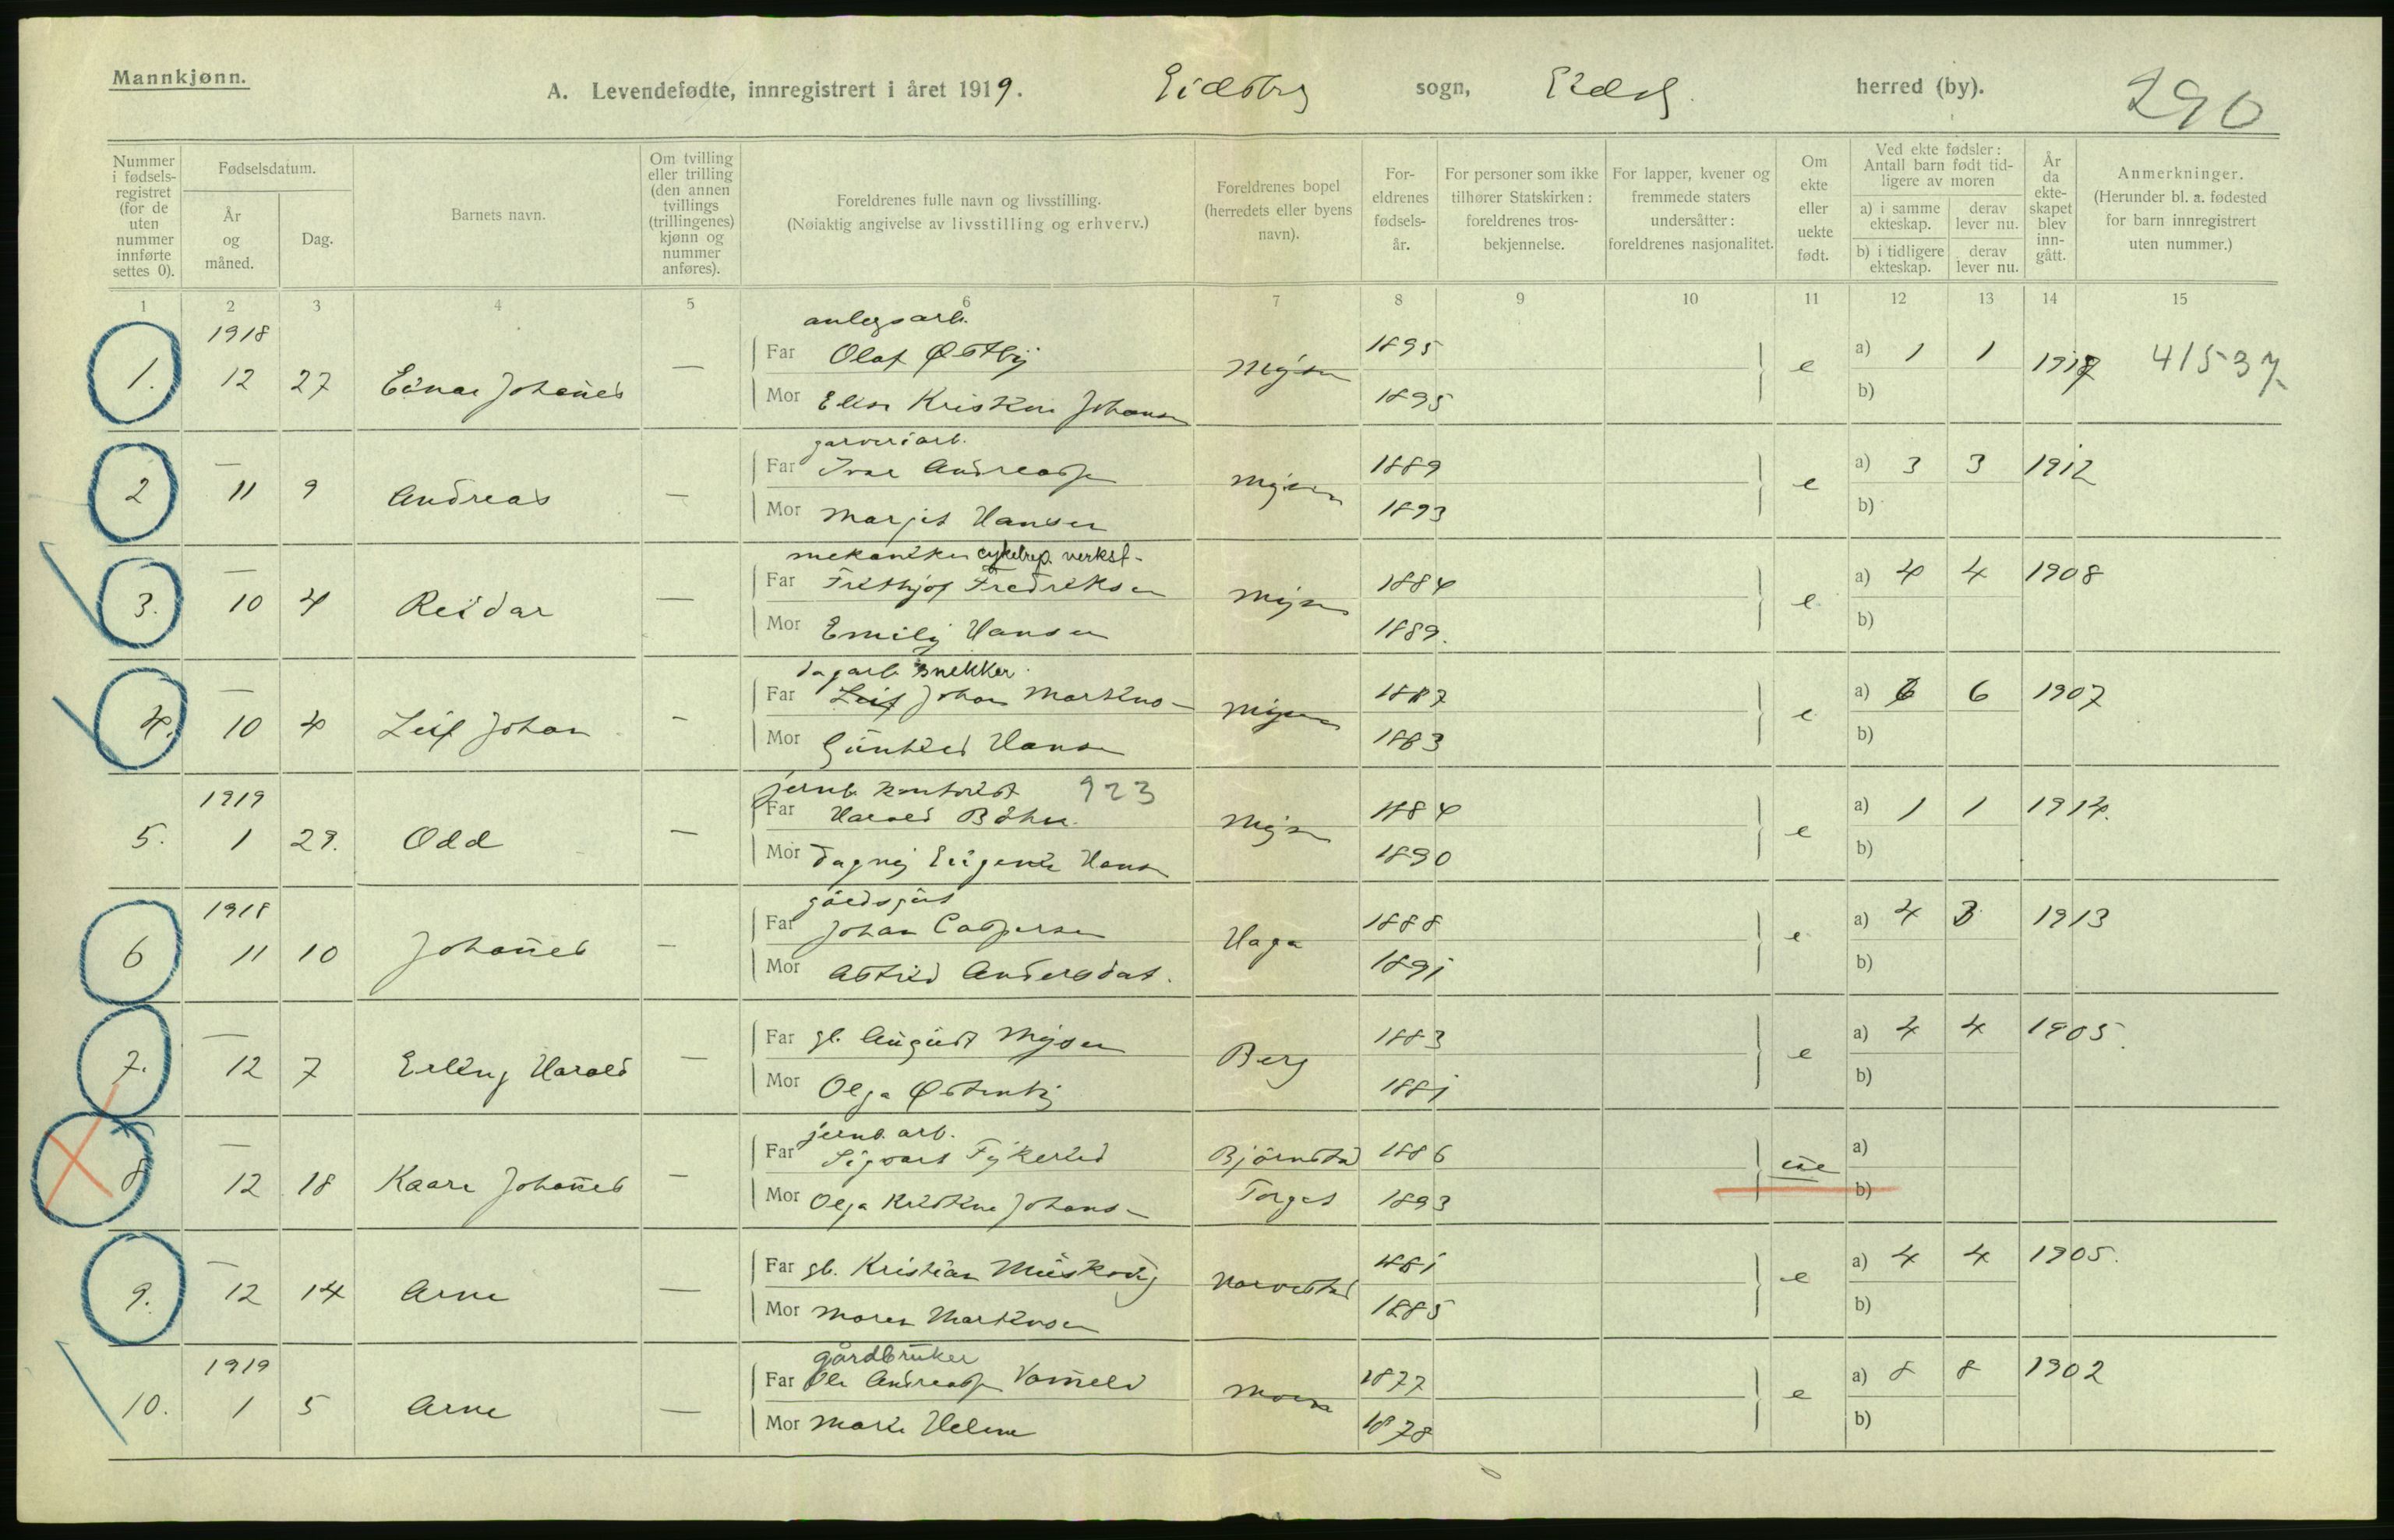 Mannkjønn.
A. Levendefødte, innregistrert i året 1919. Eidsberg sogn, Eidsb. herred (by). 290
Nummer i fødsels-registret (for de uten nummer innførte settes 0).
Fødselsdatum.
År og måned.
Dag.
Barnets navn.
Om tvilling eller trilling (den annen tvillings (trillingenes) kjønn og nummer anføres).
Foreldrenes fulle navn og livsstilling.
(Nøiaktig angivelse av livsstilling og erhverv.)
Foreldrenes bopel (herredets eller byens navn).
For-eldrenes fødsels-år.
For personer som ikke tilhører Statskirken: foreldrenes tros-bekjennelse.
For lapper, kvener og fremmede staters undersåtter: foreldrenes nasjonalitet.
Om ekte eller uekte født.
Ved ekte fødsler: Antall barn født tid-ligere av moren
a) i samme ekteskap.
derav lever nu.
b) i tidligere ekteskap.
derav lever nu.
År da ekte-skapet blev inn-gått.
Anmerkninger.
(Herunder bl. a. fødested for barn innregistrert uten nummer.)
1 2 3 4 5 6 7 8 9 10 11 12 13 14 15
1918 anlegsarb.
1. 12 27 Einar Johannes — Far Olaf Østby Mysen 1895 e a) 1 1 1917 41537
Mor Elise Kristine Johansen 1895 b)
garveriarb.
2 — 11 9 Andreas — Far Ivar Andreassen Mysen 1889 e a) 3 3 1912
Mor Margit Hansen 1893 b)
mekaniker cykelrep. verkst-
3. — 10 4 Reidar — Far Frithjof Fredriksen Mysen 1884 e a) 4 4 1908
Mor Emily Hansen 1889. b)
dagarb. snekker
4. — 10 4 Leif Johan - Far Leif Johan Martins- Mysen 1887 e a) 6 6 1907
Mor Gunhild Hansen 1883 b)
1919 jernb. kontorist 923
5. 1 29. Odd — Far Harald Böhn Mysen 1884 e a) 1 1 1914.
Mor Dagny Eugenie Hansen 1890 b)
1918 gårdsgut
6 11 10 Johannes - Far Johan Caspersen Haga 1888 e a) 4 3 1913
Mor Astrid Andersdat. 1891 b)
7. — 12 7 Erling Harald — Far gb. August Mysen Berg 1883 e a) 4 4 1905.
Mor Olga Østenby 1881 b)
jernb. arb.
8 — 12 18 Kaare Johannes - Far Sigvart Fykerud Björnstad 1886 ue a)
Mor Olga Kristine Johans- Torget 1893 b)
9. — 12 14 Arne — Far gb. Kristian Muskoug Harvestad 1881 e a) 4 4 1905.
Mor Maren Martinsen 1885 b)
1919 gårdbruker
10. 1 5 Arne — Far Ole Andreassen Vammeli Moen 1877 e a) 8 8 1902
Mor Marie Helene 1878 b)